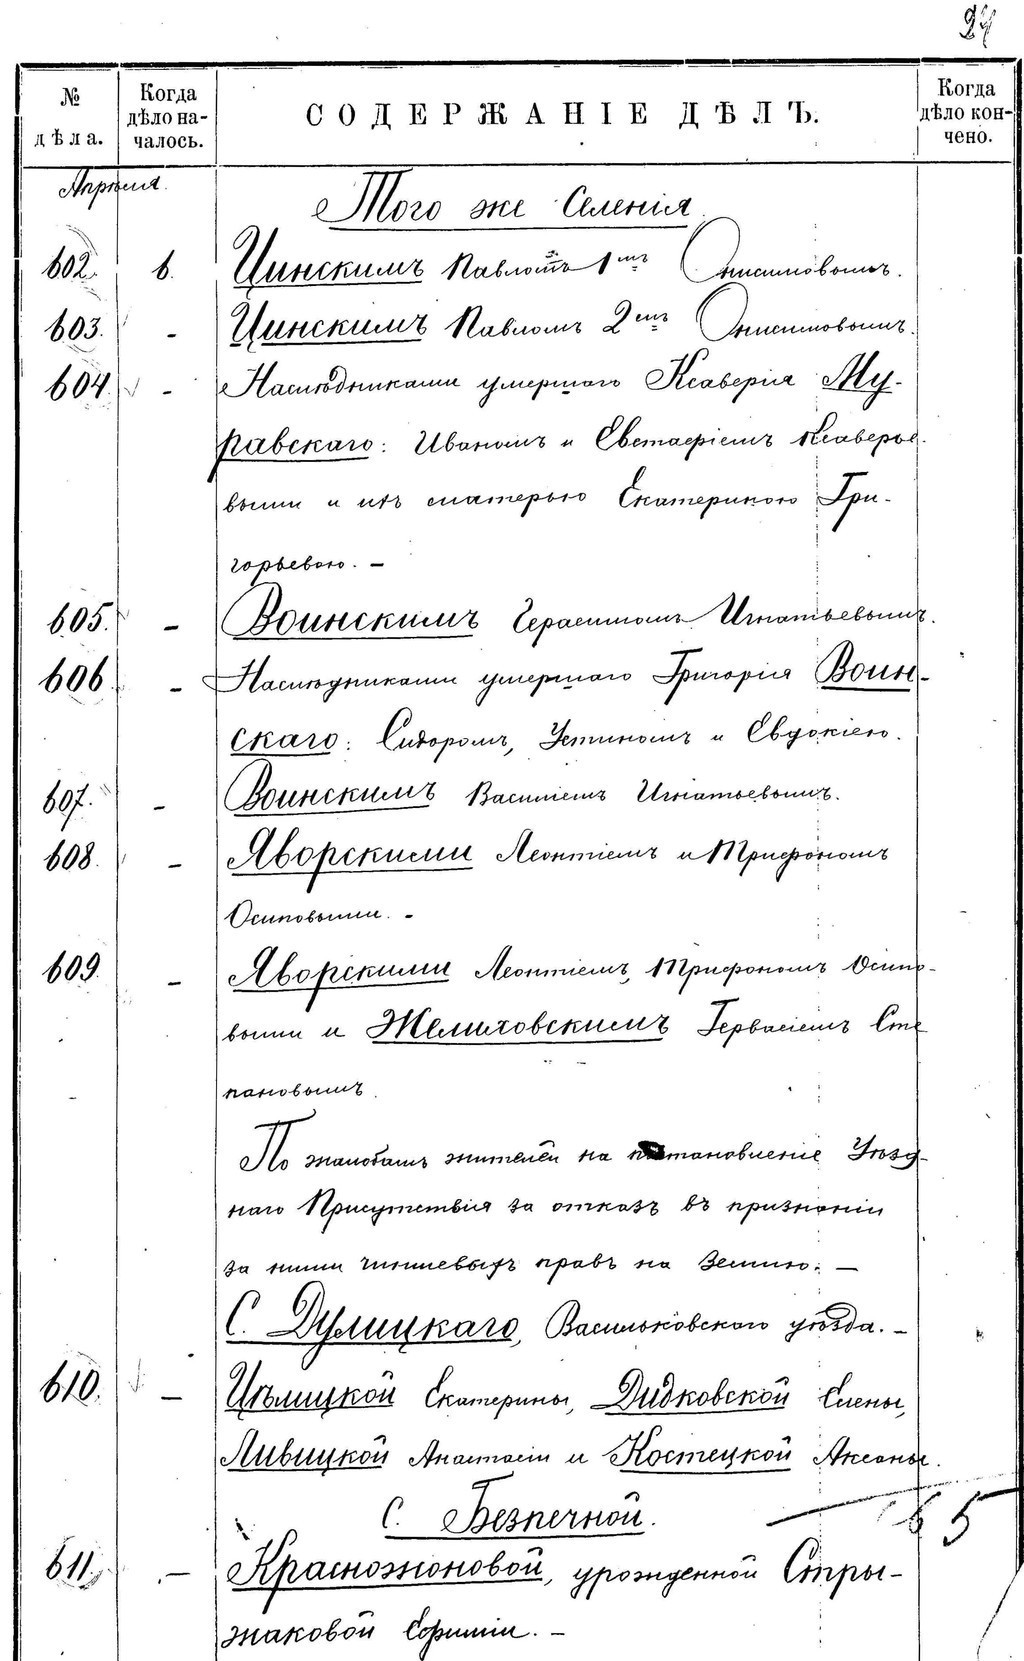 24
№ дѣла.
Когда дѣло началось.
СОДЕРЖАНІЕ ДѢЛЪ.
Когда дѣло кончено.
Апрѣля.
Того же Селенія
602. 6. Цинскимъ Павломъ 1мъ Онисимовымъ.
603. - Цинскимъ Павломъ 2мъ Онисимовымъ.
604. - Наслѣдниками умершаго Ксаверія Му-
равскаго: Иваномъ и Евстафіемъ Ксаверье-
выми и ихъ матерью Екатериною Гри-
горьевою. -
605. - Воинскимъ Герасимомъ Игнатьевымъ.
606. - Наслѣдниками умершаго Григорія Воин-
скаго: Сидоромъ, Устиномъ и Евдокіею.
607. - Воинскимъ Василіемъ Игнатьевымъ.
608. - Яворскими Леонтіемъ и Трифономъ
Осиповыми. -
609. - Яворскими Леонтіемъ, Трифономъ Осипо-
выми и Желиховскимъ Гервасіемъ Сте
пановымъ.
По жалобамъ жителей на постановленіе Уѣзд-
наго Присутствія за отказъ въ признаніи
за ними чиншевыхъ правъ на землю: -
С. Дулицкаго, Васильковскаго уѣзда. -
610. - Цѣлицкой Екатерины, Дидковской Елены,
Ливицкой Анастасіи и Костецкой Аксены.
С. Безпечной.
65
611. - Красножоновой, урожденной Стры-
жаковой Ефиміи. -